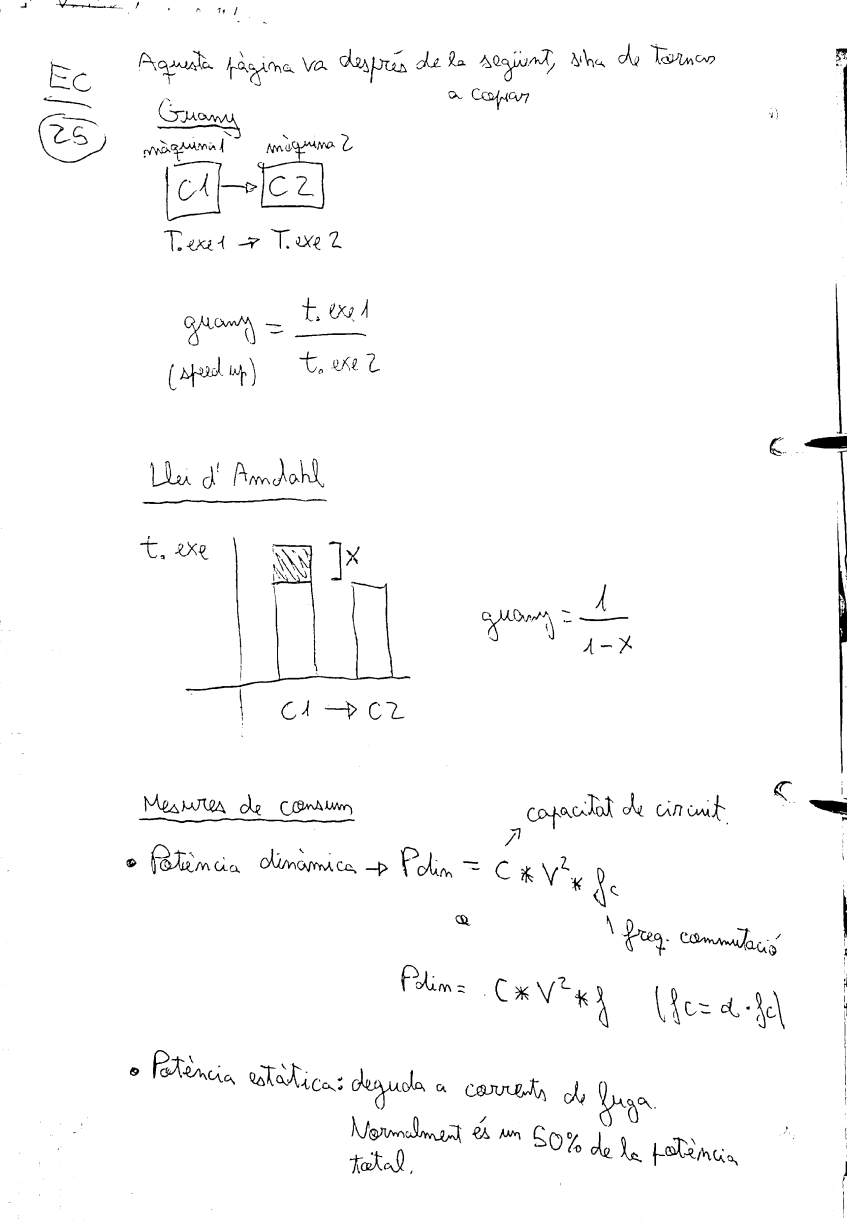 EC
25
Aquesta pàgina va després de la següent, s'ha de tornar
a copiar
Guany
màquina 1 màquina 2
C1 → C2
T. exe 1 → T. exe 2
guany = t. exe 1 / t. exe 2
(speed up)
Llei d'Amdahl
t. exe
X
guany = 1 / 1-X
C1 → C2
Mesures de consum
capacitat de circuit.
• Potència dinàmica → Pdin = C * V² * fc
o
freq. commutació
Pdin = C * V² * f (fc = α · fc)
• Potència estàtica: deguda a corrents de fuga.
Normalment és un 50% de la potència
total.